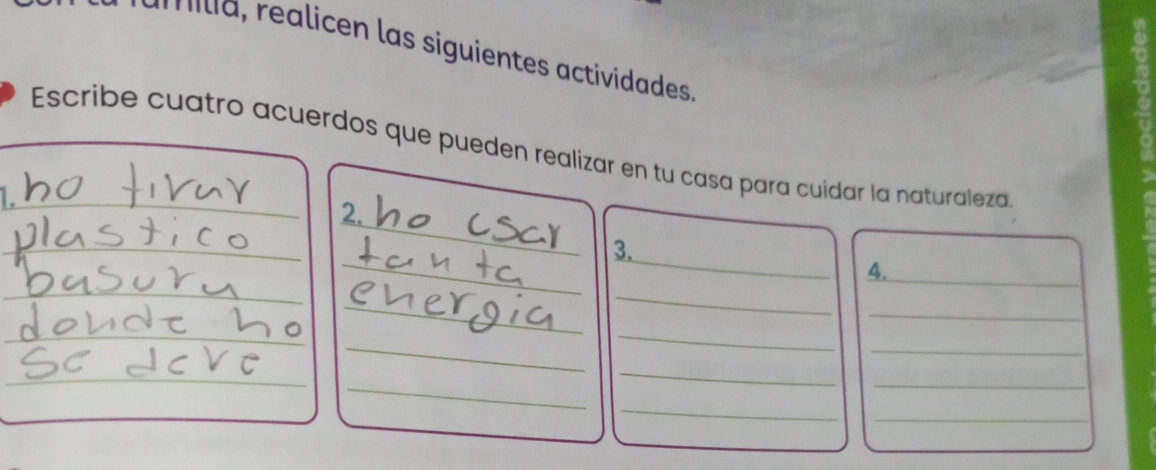 tu familia, realicen las siguientes actividades.
Escribe cuatro acuerdos que pueden realizar en tu casa para cuidar la naturaleza.
1. no tirar
plastico
basura
donde no
se deve
2. no usar
tanta
energia
3.
4.
naturaleza y sociedades